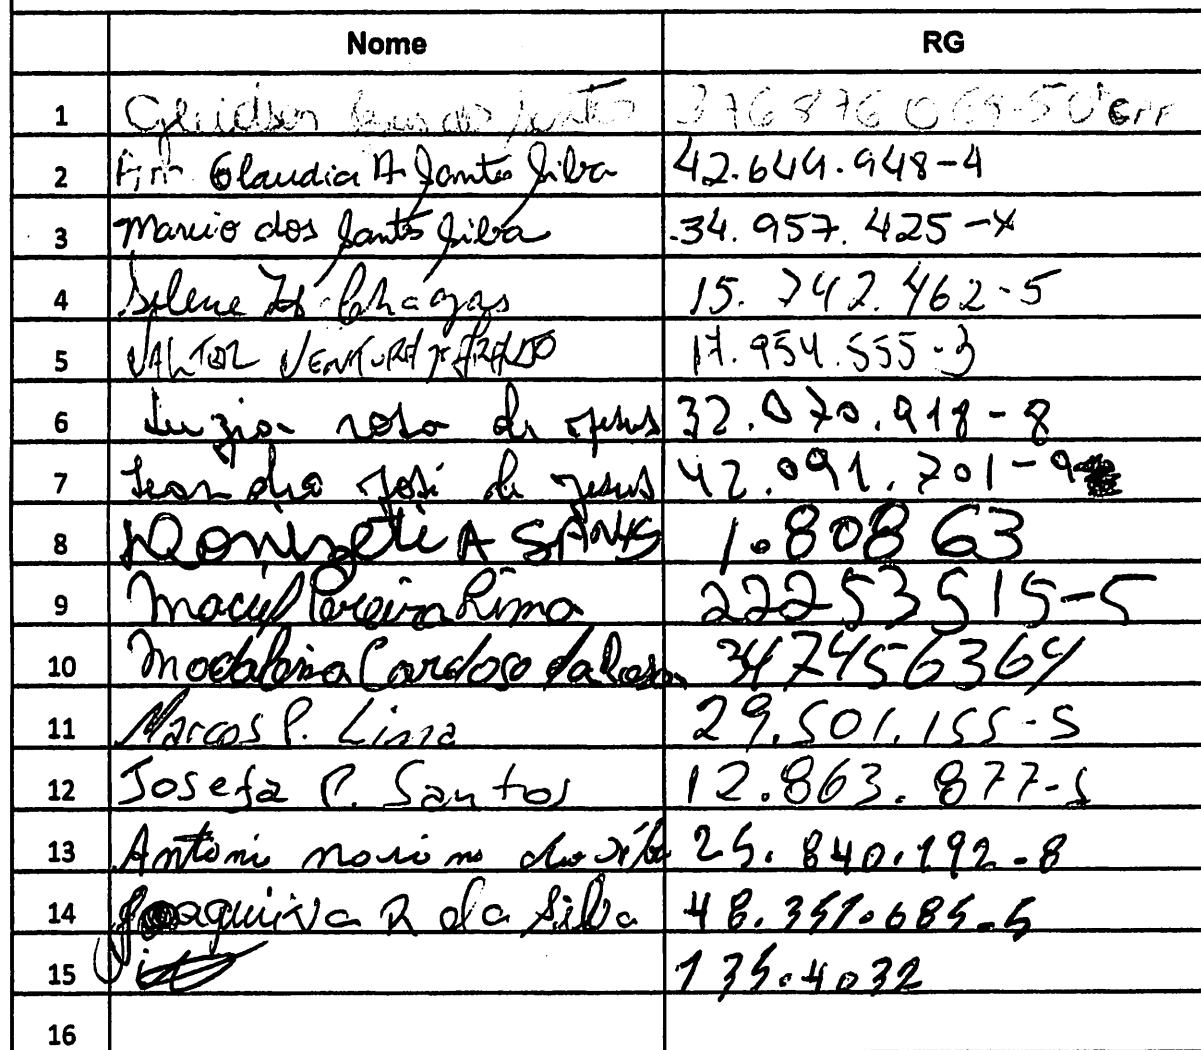 Nome RG
1
2 Claudia A Santos Silva 42.649.948-4
3 Marcio dos Santos Silva 34.957.425-X
4 Chagas 15.742.462-5
5 VALTER VENTURA 17.954.555-3
6 Luzia rosa de Jesus 32.070.918-8
7 Leandro José de Jesus 42.091.701-9
8 Donizeti A SANTOS 1.80863
9 Maciel Pereira Lima 22253515-5
10 Madalena Cardoso da 347456364
11 Marcos P. Lima 29.501.155-5
12 Josefa P. Santos 12.863.877-
13 Antonio 25.840.192-8
14 Joaquina R da Silva 48.351.685-5
15 135.4032
16